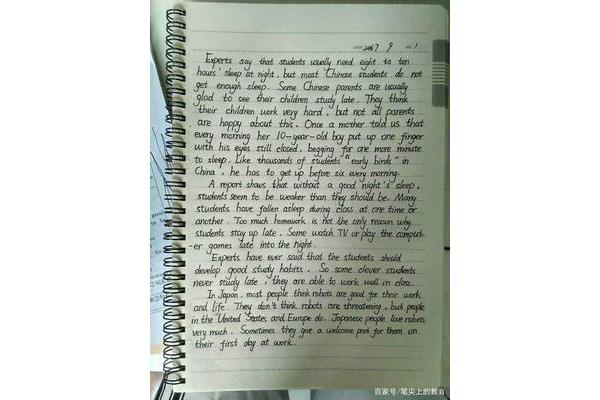 DATE 2016 7 9 NO. 1
Experts say that students usually need eight to ten
hours' sleep at night, but most Chinese students do not
get enough sleep. Some Chinese parents are usually
glad to see their children study late. They think
their children work very hard, but not all parents
are happy about this. Once a mother told us that
every morning her 10-year-old boy put up one finger
with his eyes still closed, begging for one more minute
to sleep. Like thousands of students "early birds" in
China, he has to get up before six every morning.
A report shows that without a good night's sleep,
students seem to be weaker than they should be. Many
students have fallen asleep during class at one time or
another. Too much homework is not the only reason why
students stay up late. Some watch TV or play the comput-
er games late into the night.
Experts have ever said that the students should
develop good study habits. So some clever students
never study late, they are able to work well in class.
In Japan, most people think robots are good for their work
and life. They don't think robots are threatening, but people
in the United States and Europe do. Japanese people love robots
very much. Sometimes they give a welcome party for them on
their first day at work.
百家号/笔尖上的教育